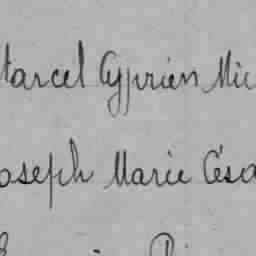 Marcel Cyprien Mic
Joseph Marie Césa